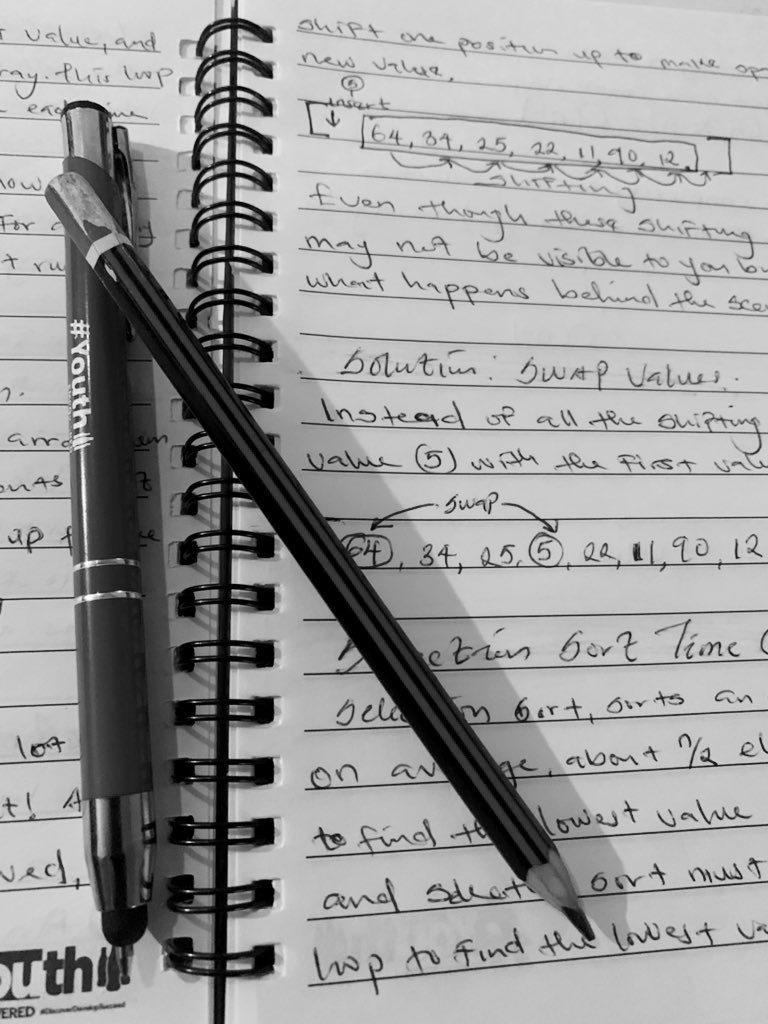 t value, and
ray. This loop
each time
now
For
t ru
n.
up
lot
t! A
ved,
#Youth
outh
ERED #DiscoverDevelopSucceed
shift one position up to make
new value.
5
insert
64, 34, 25, 22, 11, 90, 12,
shifting
Even though these shifting
may not be visible to you bu
what happens behind the sce
Solution: Swap Values.
Instead of all the shifting
value (5) with the first valu
swap
64, 34, 25, 5, 22, 11, 90, 12
S ection Sort Time (
Sele on Sort, sorts an
on av ge, about n/2 el
to find th lowest value
and select sort must
loop to find the lowest va